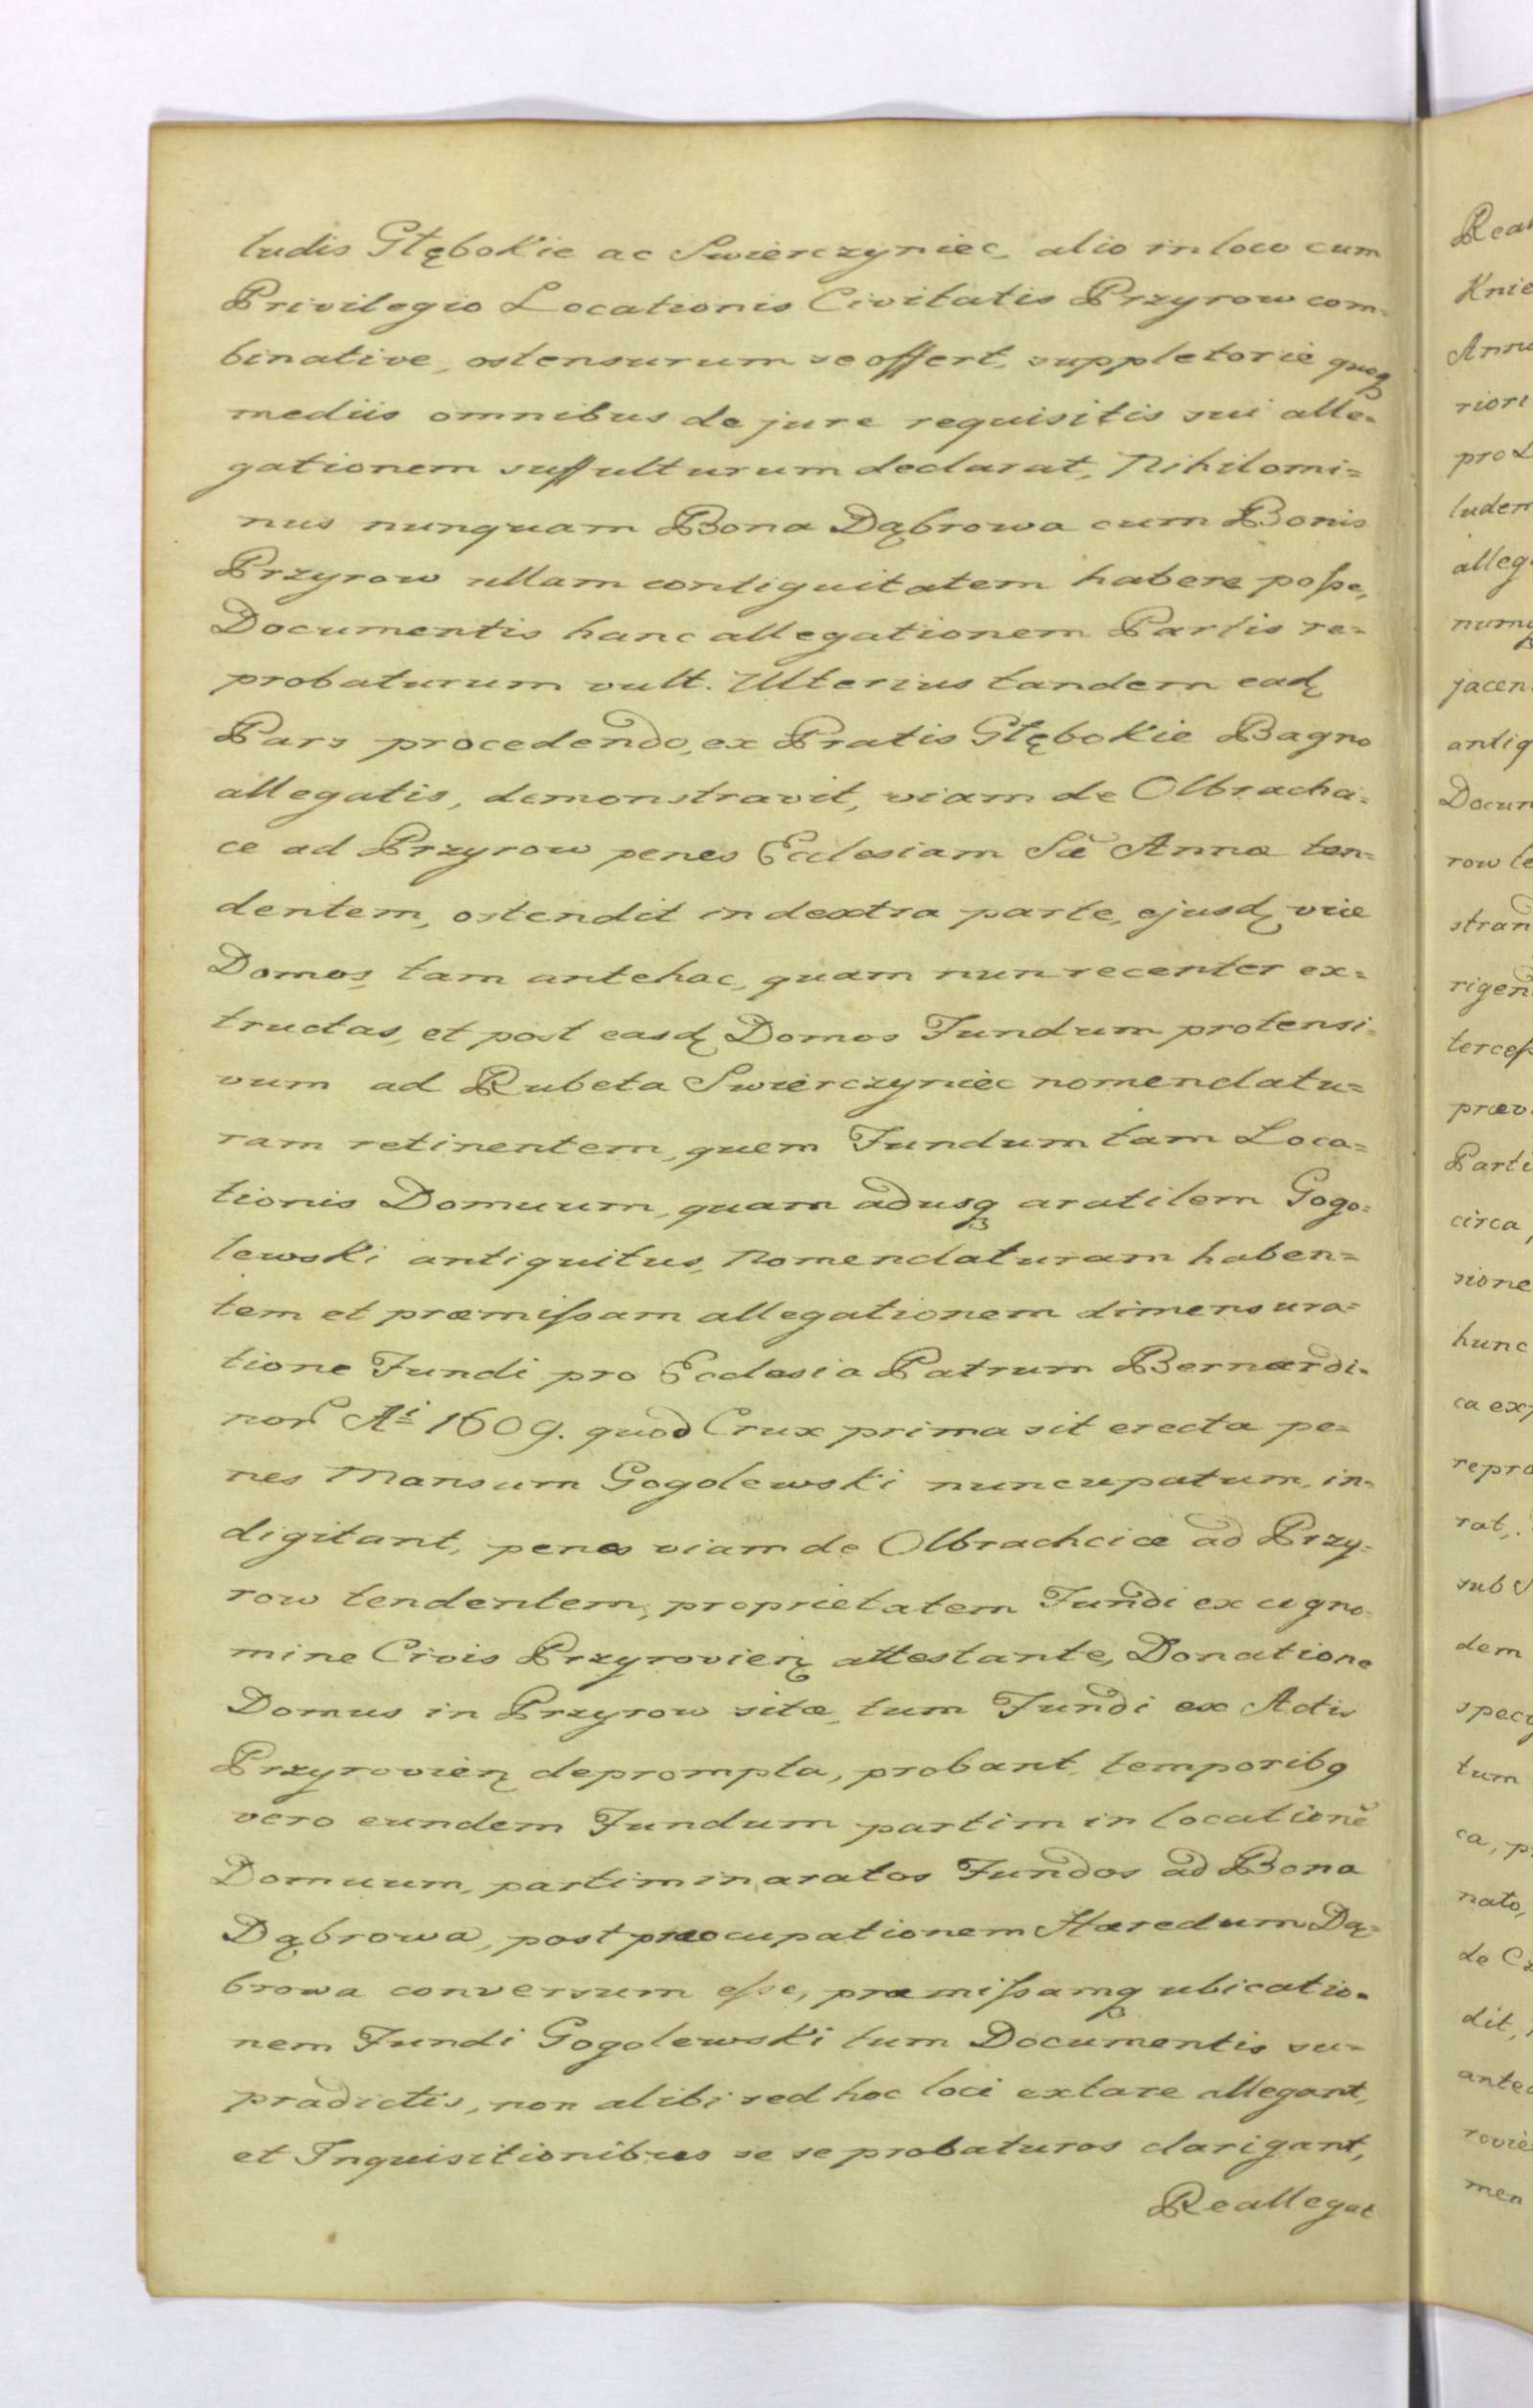 ludis Głębokie ac Swierczyniec, alio in loco cum
Privilegio Locationis Civitatis Przyrow com=
binative, ostensurum se offert, suppletorie quoq
mediis omnibus de jure requisitis sui alle=
gationem suffulturum declarat, Nihilomi=
nus nunquam Bona Dąbrowa cum Bonis
Przyrow ullam contiguitatem habere poſse,
Documentis hanc allegationem Partis re=
probaturum vult. Ulterius tandem ead
Pars procedendo, ex Pratis Głębokie Bagno
allegatis, demonstravit, viam de Olbracha=
ce ad Przyrow penes Ecclesiam Sæ Annæ ten=
dentem, ostendit in dextra parte, ejusd viæ
Domos, tam antehac, quam nun recenter ex=
tructas, et post easd Domos Fundum protensi=
vum ad Rubeta Swierczyniec nomenclatu=
ram retinentem, quem Fundum tam Loca=
tionis Domuum, quam adusq aratilem Gogo=
lewski antiquitus, Nomenclaturam haben=
tem et præmiſsam allegationem dimensura=
tione Fundi pro Ecclesia Patrum Bernardi=
nor Ai 1609. quod Crux prima sit erecta pe=
nes Mansum Gogolewski nuncupatum, in=
digitant, penes viam de Olbrachcice ad Przy=
row tendentem, proprietatem Fundi ex cogno=
mine Civis Przyrovien attestante, Donatione
Domus in Przyrow sitæ, tum Fundi ex Actis
Przyrovien deprompta, probant, temporibq
vero eundem Fundum partim in locatione
Domuum, partim in aratos Fundos ad Bona
Dąbrowa, post præocupationem Hæredum Dą=
browa conversum eſse, præmiſsamq ubicatio=
nem Fundi Gogolewski tum Documentis su=
pradictis, non alibi sed hoc loci extare allegant,
et Inquisitionibus se se probaturos clarigant,
Reallegat